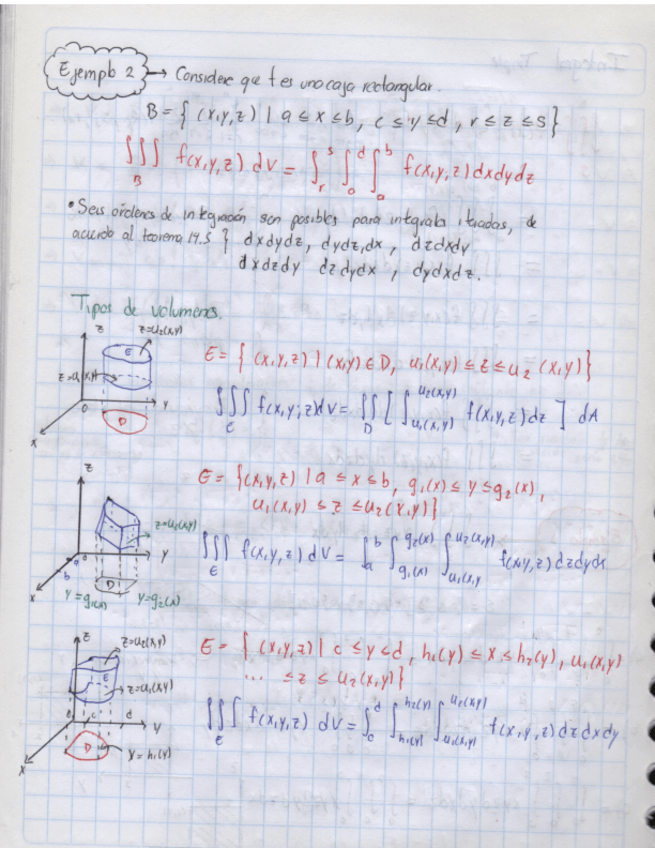 Ejemplo 2 → Considere que f es una caja rectangular.
B = { (x,y,z) | a ≤ x ≤ b, c ≤ y ≤ d, r ≤ z ≤ s}
∭_B f(x,y,z) dV = ∫_r^s ∫_0^d ∫_a^b f(x,y,z) dxdydz
• Seis ordenes de integración son posibles para integrales iteradas, de
acuerdo al teorema 14.5 } dxdydz, dydz,dx, dzdxdy
dxdzdy dzdydx, dydxdz.
Tipos de volumenes.
z
z=u₂(x,y)
E
z=u₁(x,y)
0
y
D
x
E = { (x,y,z) | (x,y) ∈ D, u₁(x,y) ≤ z ≤ u₂(x,y)}
∭_E f(x,y,z)dV = ∬_D [ ∫_{u₁(x,y)}^{u₂(x,y)} f(x,y,z)dz ] dA
z
z=u₂(x,y)
a
b
y
D
x
y=g₁(x)
y=g₂(x)
E = {(x,y,z) | a ≤ x ≤ b, g₁(x) ≤ y ≤ g₂(x),
u₁(x,y) ≤ z ≤ u₂(x,y)}
∭_E f(x,y,z) dV = ∫_a^b ∫_{g₁(x)}^{g₂(x)} ∫_{u₁(x,y}^{u₂(x,y)} f(x,y,z) dzdydx
z
z=u₂(x,y)
E
z=u₁(x,y)
c
d
y
D
x = h₁(y)
x
E = { (x,y,z) | c ≤ y < d, h₁(y) ≤ x ≤ h₂(y), u₁(x,y)
... ≤ z ≤ u₂(x,y)}
∭_E f(x,y,z) dV = ∫_c^d ∫_{h₁(y)}^{h₂(y)} ∫_{u₁(x,y)}^{u₂(x,y)} f(x,y,z) dzdxdy